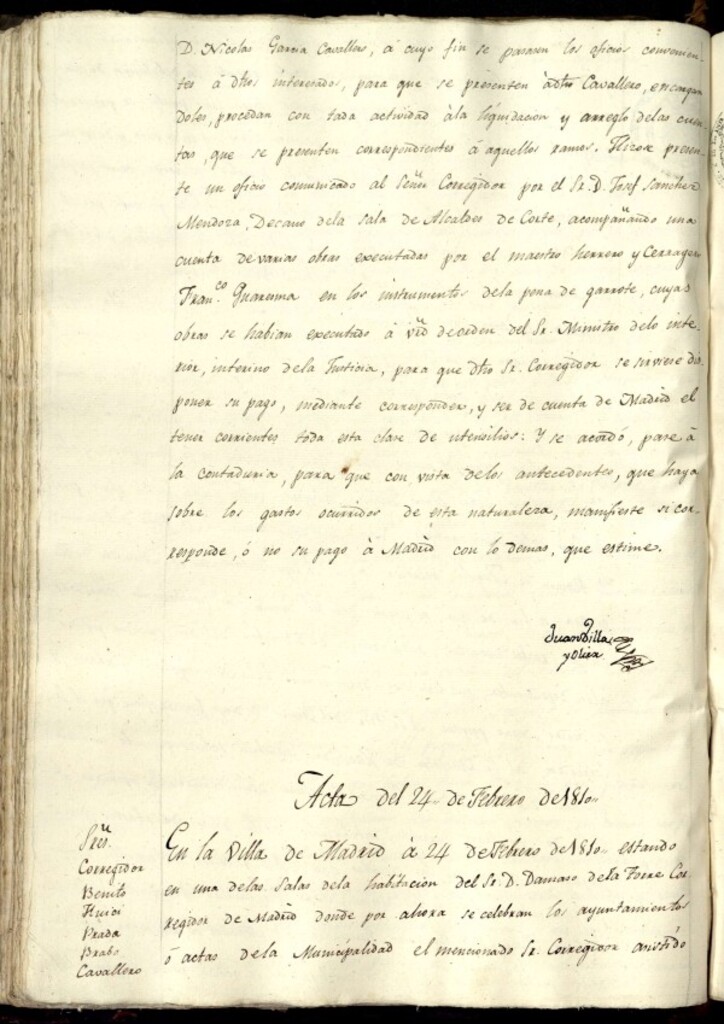 D. Nicolas Garcia Cavallero, á cuyo fin se pasasen los oficios convenien-
tes á dhos interesados, para que se presenten á dho Cavallero, encargan
doles, procedan con toda actividad á la liquidacion y arreglo delas cuen
tas, que se presenten correspondientes á aquellos ramos. Hizose presen-
te un oficio comunicado al Señor Corregidor por el Sr. D. Josef Sanchez
Mendoza, Decano dela Sala de Alcaldes de Corte, acompañando una
cuenta de varias obras executadas por el maestro herrero y Cerragero
Fran.co Guaresma en los instrumentos dela pena de garrote, cuyas
obras se habian executado á vrd de orden del Sr. Ministro delo inte-
rior, interino dela Justicia, para que dho Sr. Corregidor se sirviese dis
poner su pago, mediante corresponder, y ser de cuenta de Madrid el
tener corrientes toda esta clase de utensilios: Y se acordó, pase á
la contaduria, para que con vista delos antecedentes, que haya
sobre los gastos ocurridos de esta naturaleza, manifieste si cor-
responde, ó no su pago á Madrid con lo demas, que estime.
Juan Villa
y Olier
Acta del 24 de Febrero de 1810
Sres.
Corregidor
Benito
Huici
Prada
Brabo
Cavallero
En la Villa de Madrid á 24 de Febrero de 1810 estando
en una delas Salas dela habitacion del Sr. D. Damaso dela Torre Cor
regidor de Madrid donde por ahora se celebran los ayuntamientos
ó actas dela Municipalidad el mencionado Sr. Corregidor asistido